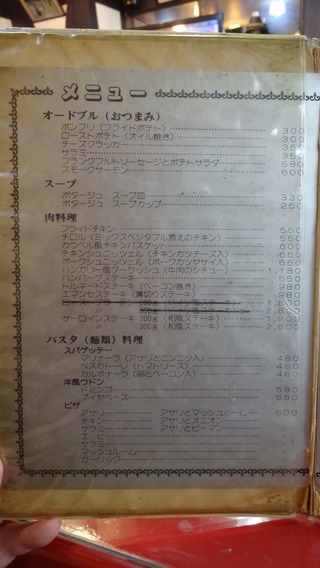 メニュー
オードブル（おつまみ）
ポンフリ（フライドポテト） 300
ローストポテト（オイル焼き） 300
チーズクラッカー 350
サラミ 350
フランクフルトソーセージとポテトサラダ 580
スモークサーモン 600
スープ
ポタージュ スープ皿 330
ポタージュ スープカップ 250
肉料理
フライドチキン 550
チロル（ミックスベジタブル添えのチキン） 550
カウベル風チキンバスケット 600
チキンシュニッツェル（チキンカツチーズ入） 550
ポークシュニッツェル（ポークカツヤサイ入） 550
ハンガリー風グーラッシュ（牛肉のシチュー） 1,180
ハンバーグステーキ 550
トルネードステーキ（ベーコン巻き） 980
エマンセステーキ（薄切りステーキ） 980
サーロインステーキ 200g（和風ステーキ） 1,800
〃 300g（和風ステーキ） 2,600
パスタ（麺類）料理
スパゲッテー
マリナーラ（アサリとニンニク入） 480
ペスカトーレ（トマトソース） 480
カルボナーラ（卵とベーコン入） 480
洋風ウドン
ドミンゴ 580
ブイヤベース 680
ピザ
アサリ アサリとマッシュルーム 600
チキン アサリとオニオン
サラミ アサリとピーマン
エビ
サラミ
マッシュルーム
ガーリック